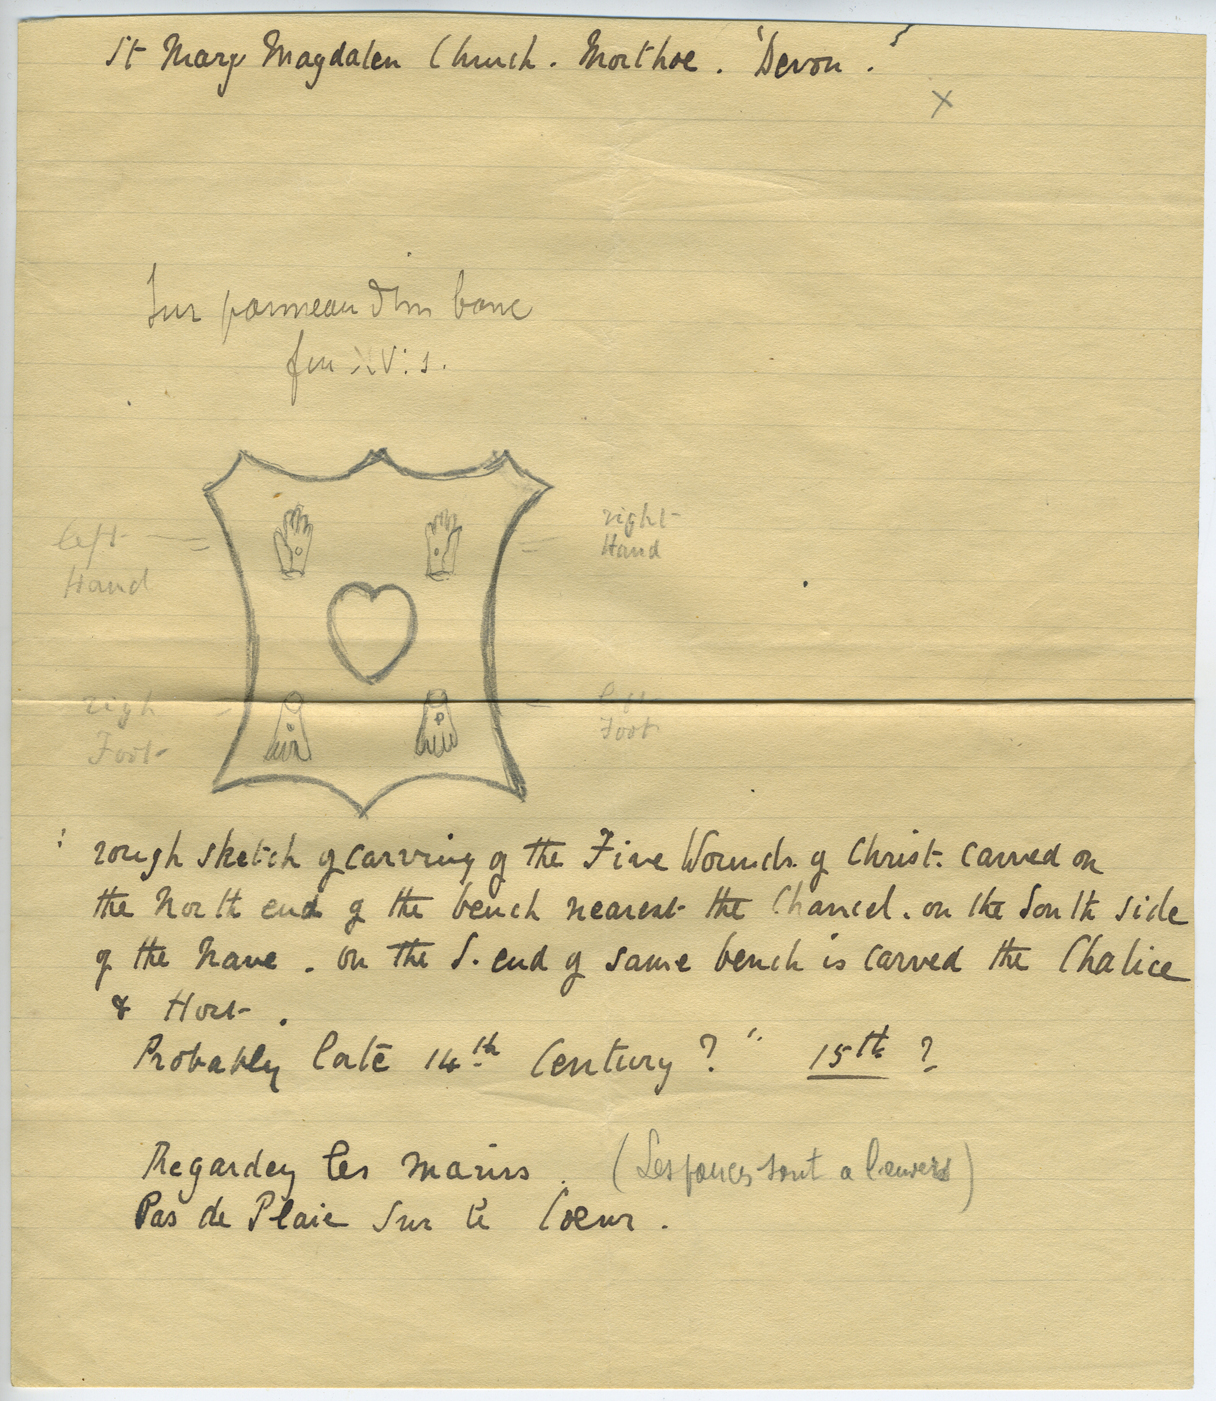 St Mary Magdalen Church. Morthoe. Devon.
x
Sur panneau d'un banc
fin XV: s.
left
Hand
right
Hand
righ
Foot
left
Foot
rough sketch of carving of the Five Wounds of Christ. carved on
the North end of the bench nearest the Chancel. on the South side
of the Nave. on the S. end of same bench is carved the Chalice
& Host.
Probably late 14th Century? " 15th ?
Regardez les mains. (Les pouces sont a l'envers)
Pas de Plaie sur le Coeur.